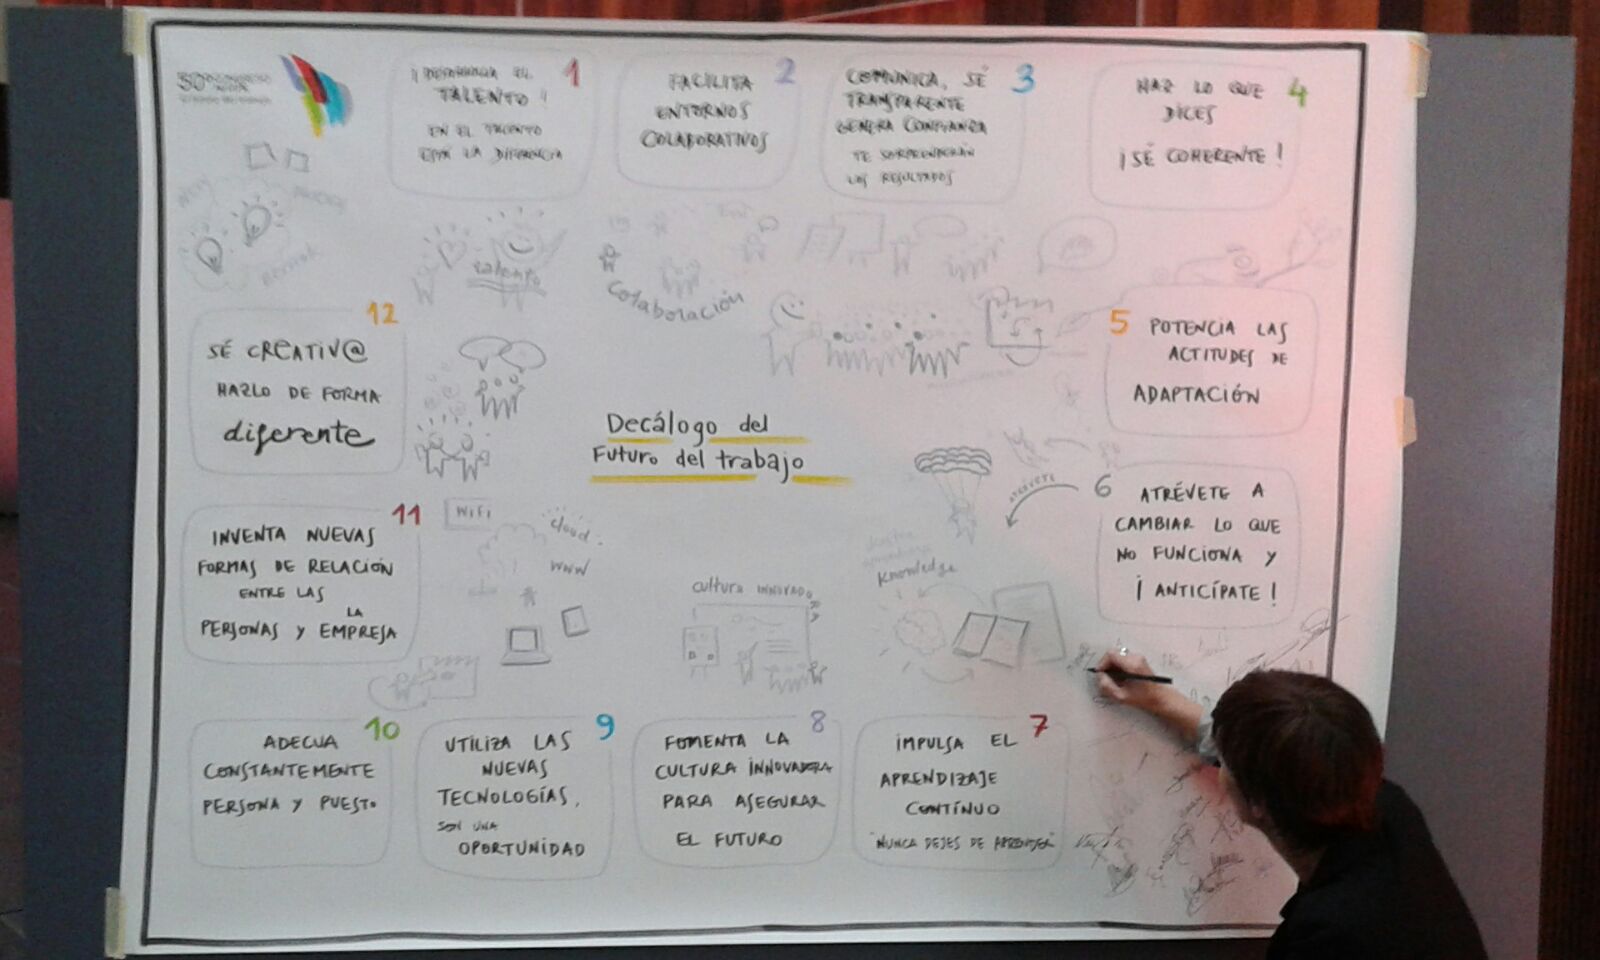 50º CONGRESO
1
¡DESARROLLA EL
TALENTO!
EN EL TALENTO
ESTÁ LA DIFERENCIA
2
FACILITA
ENTORNOS
COLABORATIVOS
3
COMUNICA, SÉ
TRANSPARENTE
GENERA CONFIANZA
TE SORPRENDERÁN
LOS RESULTADOS
4
HAZ LO QUE
DICES
¡SÉ COHERENTE!
talento
Colaboración
5
POTENCIA LAS
ACTITUDES DE
ADAPTACIÓN
Decálogo del
Futuro del trabajo
6
ATRÉVETE A
CAMBIAR LO QUE
NO FUNCIONA Y
¡ANTICÍPATE!
ATRÉVETE
Knowledge
7
IMPULSA EL
APRENDIZAJE
CONTÍNUO
"NUNCA DEJES DE APRENDER"
8
FOMENTA LA
CULTURA INNOVADORA
PARA ASEGURAR
EL FUTURO
cultura INNOVADORA
9
UTILIZA LAS
NUEVAS
TECNOLOGÍAS,
SON UNA
OPORTUNIDAD
10
ADECUA
CONSTANTEMENTE
PERSONA Y PUESTO
11
INVENTA NUEVAS
FORMAS DE RELACIÓN
ENTRE LAS
PERSONAS Y LA EMPRESA
WiFi
cloud
WWW
12
SÉ CREATIV@
HAZLO DE FORMA
diferente